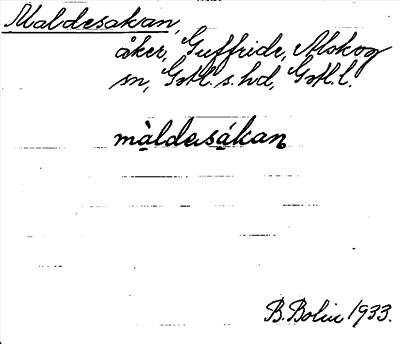 Maldesakan,
åker, Guffride, Alskog
sn, Gotl. s. hd, Gotl. l.
màldesákan
B. Bolin 1933.